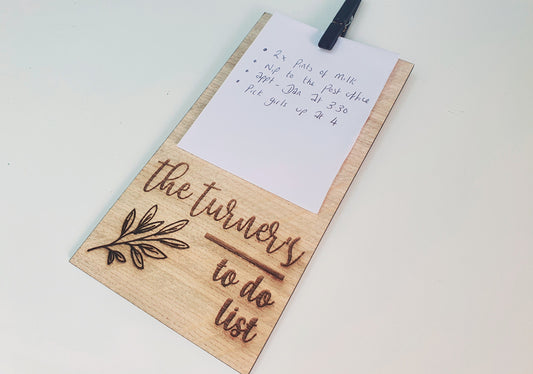 • 2x Pints of Milk
• Nip to the Post office
• Appt - Dan at 3:30
• Pick girls up at 4
the turner's
to do
list